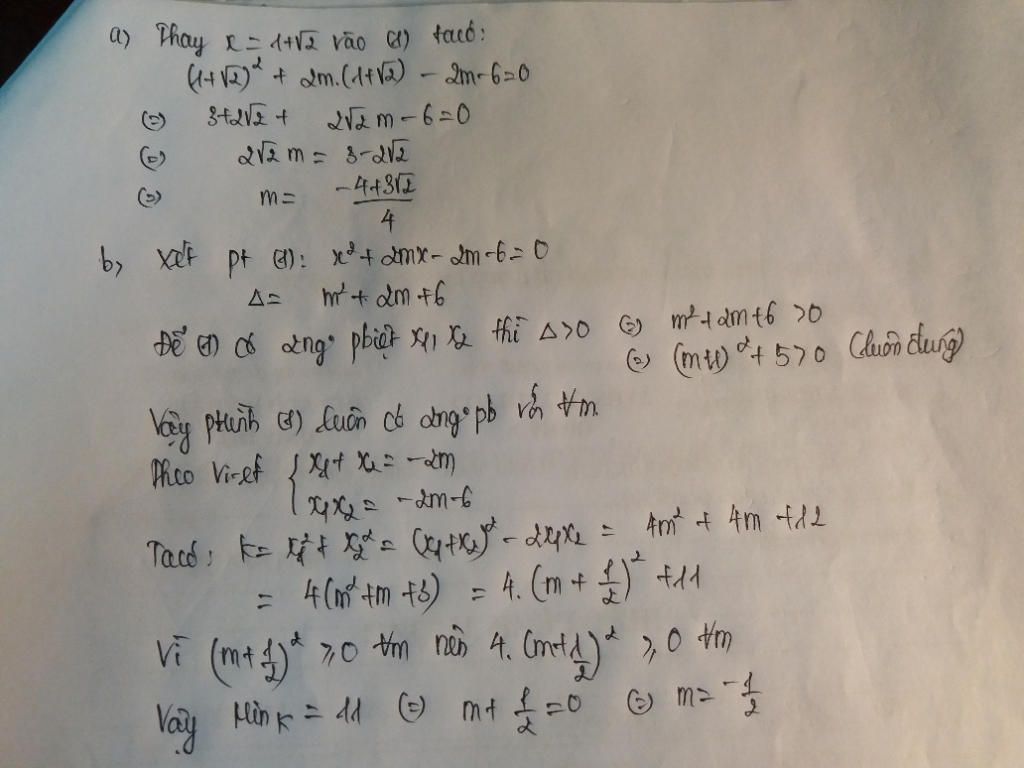 a) Thay x = 1+√2 vào (1) ta có:
(1+√2)² + 2m.(1+√2) - 2m-6=0
(=) 3+2√2 + 2√2 m - 6 = 0
(=) 2√2 m = 3-2√2
(=) m = (-4+3√2)/4
b, Xét pt (1): x² + 2mx - 2m-6 = 0
Δ = m² + 2m +6
Để (1) có 2ng° pbiệt x1, x2 thì Δ>0 (=) m²+2m+6 >0
(=) (m+1)² + 5 >0 (luôn đúng)
Vậy ptrình (1) luôn có 2ng° pb với ∀m
Theo Vi-et { x1 + x2 = -2m
x1x2 = -2m-6
Ta có: K = x1² + x2² = (x1+x2)² - 2x1x2 = 4m² + 4m +12
= 4(m²+m+3) = 4.(m + 1/2)² +11
Vì (m+1/2)² ⩾0 ∀m nên 4.(m+1/2)² ⩾0 ∀m
Vậy Min K = 11 (=) m + 1/2 = 0 (=) m = -1/2